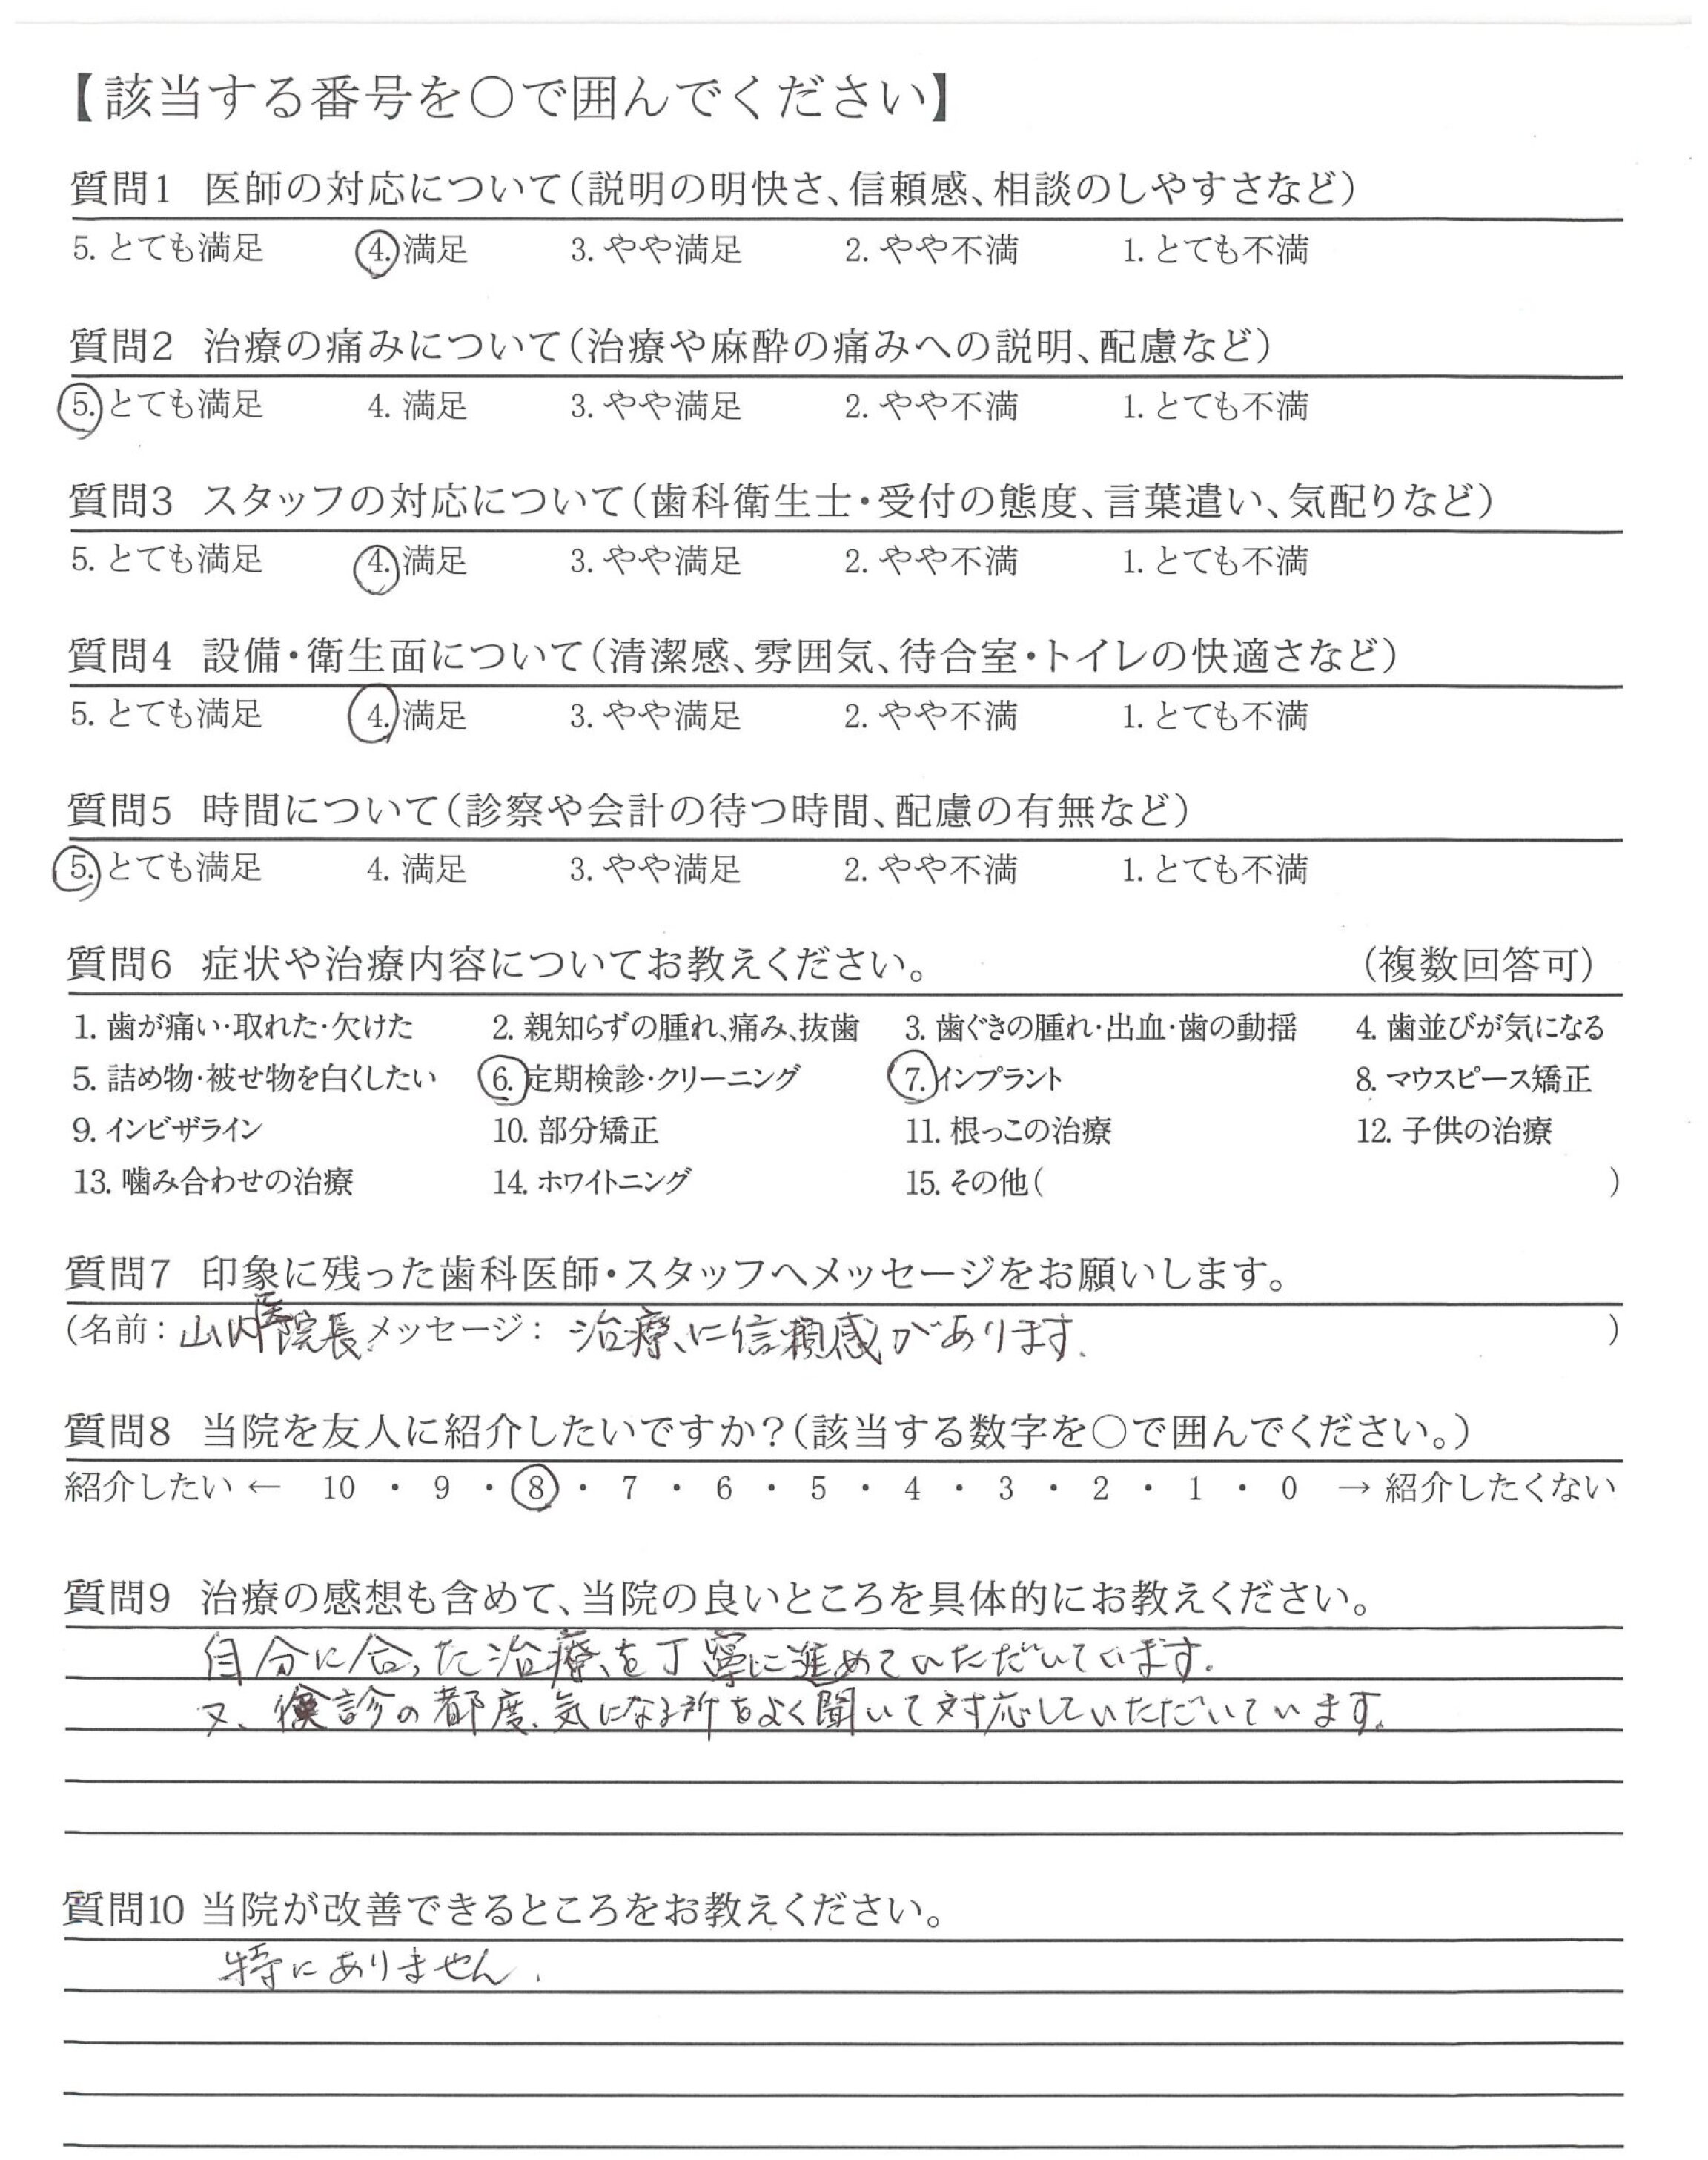 【該当する番号を○で囲んでください】
質問1 医師の対応について(説明の明快さ、信頼感、相談のしやすさなど)
5. とても満足 4. 満足 3. やや満足 2. やや不満 1. とても不満
質問2 治療の痛みについて(治療や麻酔の痛みへの説明、配慮など)
5. とても満足 4. 満足 3. やや満足 2. やや不満 1. とても不満
質問3 スタッフの対応について(歯科衛生士・受付の態度、言葉遣い、気配りなど)
5. とても満足 4. 満足 3. やや満足 2. やや不満 1. とても不満
質問4 設備・衛生面について(清潔感、雰囲気、待合室・トイレの快適さなど)
5. とても満足 4. 満足 3. やや満足 2. やや不満 1. とても不満
質問5 時間について(診察や会計の待つ時間、配慮の有無など)
5. とても満足 4. 満足 3. やや満足 2. やや不満 1. とても不満
質問6 症状や治療内容についてお教えください。 (複数回答可)
1. 歯が痛い・取れた・欠けた 2. 親知らずの腫れ、痛み、抜歯 3. 歯ぐきの腫れ・出血・歯の動揺 4. 歯並びが気になる
5. 詰め物・被せ物を白くしたい 6. 定期検診・クリーニング 7. インプラント 8. マウスピース矯正
9. インビザライン 10. 部分矯正 11. 根っこの治療 12. 子供の治療
13. 噛み合わせの治療 14. ホワイトニング 15. その他( )
質問7 印象に残った歯科医師・スタッフへメッセージをお願いします。
(名前: 山内医院長 メッセージ: 治療に信頼感があります. )
質問8 当院を友人に紹介したいですか?(該当する数字を○で囲んでください。)
紹介したい ← 10 ・ 9 ・ 8 ・ 7 ・ 6 ・ 5 ・ 4 ・ 3 ・ 2 ・ 1 ・ 0 → 紹介したくない
質問9 治療の感想も含めて、当院の良いところを具体的にお教えください。
自分に合った治療を丁寧に進めていただいています.
又、検診の都度、気になる所をよく聞いて対応していただいています.
質問10 当院が改善できるところをお教えください。
特にありません.